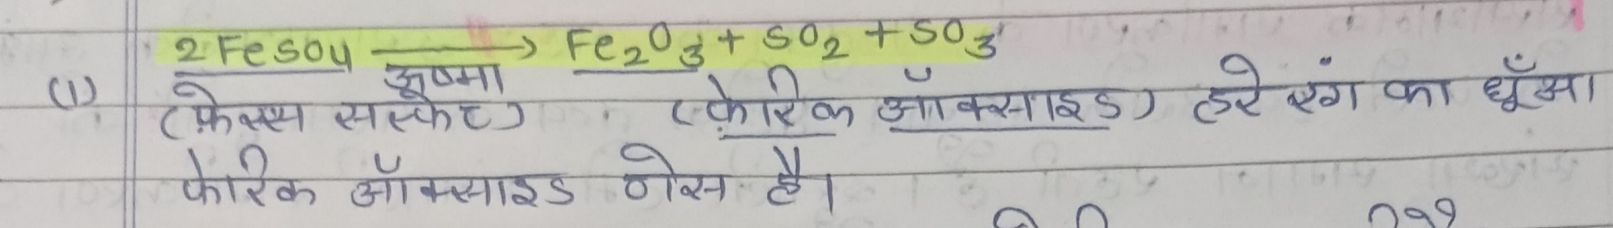 2FeSO4 ⟶ Fe2O3 + SO2 + SO3
ऊष्मा
(1) (फेरस सल्फेट) (फेरिक ऑक्साइड) हरे रंग का धूँआ।
फेरिक ऑक्साइड ठोस है।